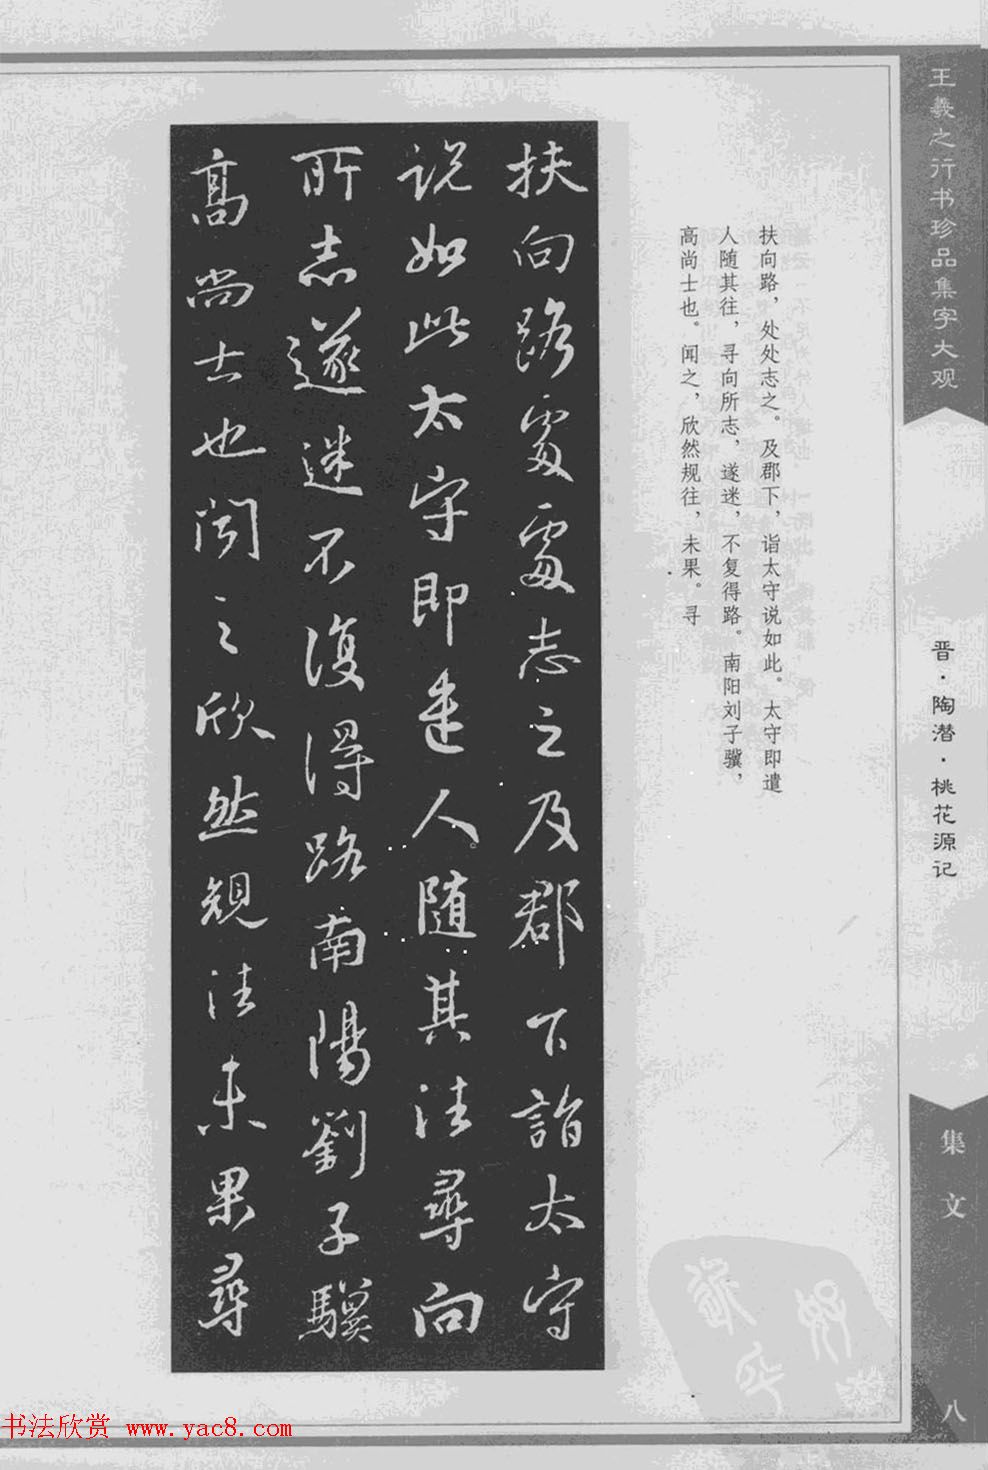 王羲之行书珍品集字大观
晋·陶潜·桃花源记
集文
八
扶向路，处处志之。及郡下，诣太守说如此。太守即遣
人随其往，寻向所志，遂迷，不复得路。南阳刘子骥，
高尚士也。闻之，欣然规往，未果。寻
扶向路處處志之及郡下詣太守
说如此太守即遣人随其往尋向
所志遂迷不復得路南陽劉子驥
高尚士也闻之欣然規往未果尋
书法欣赏 www.yac8.com